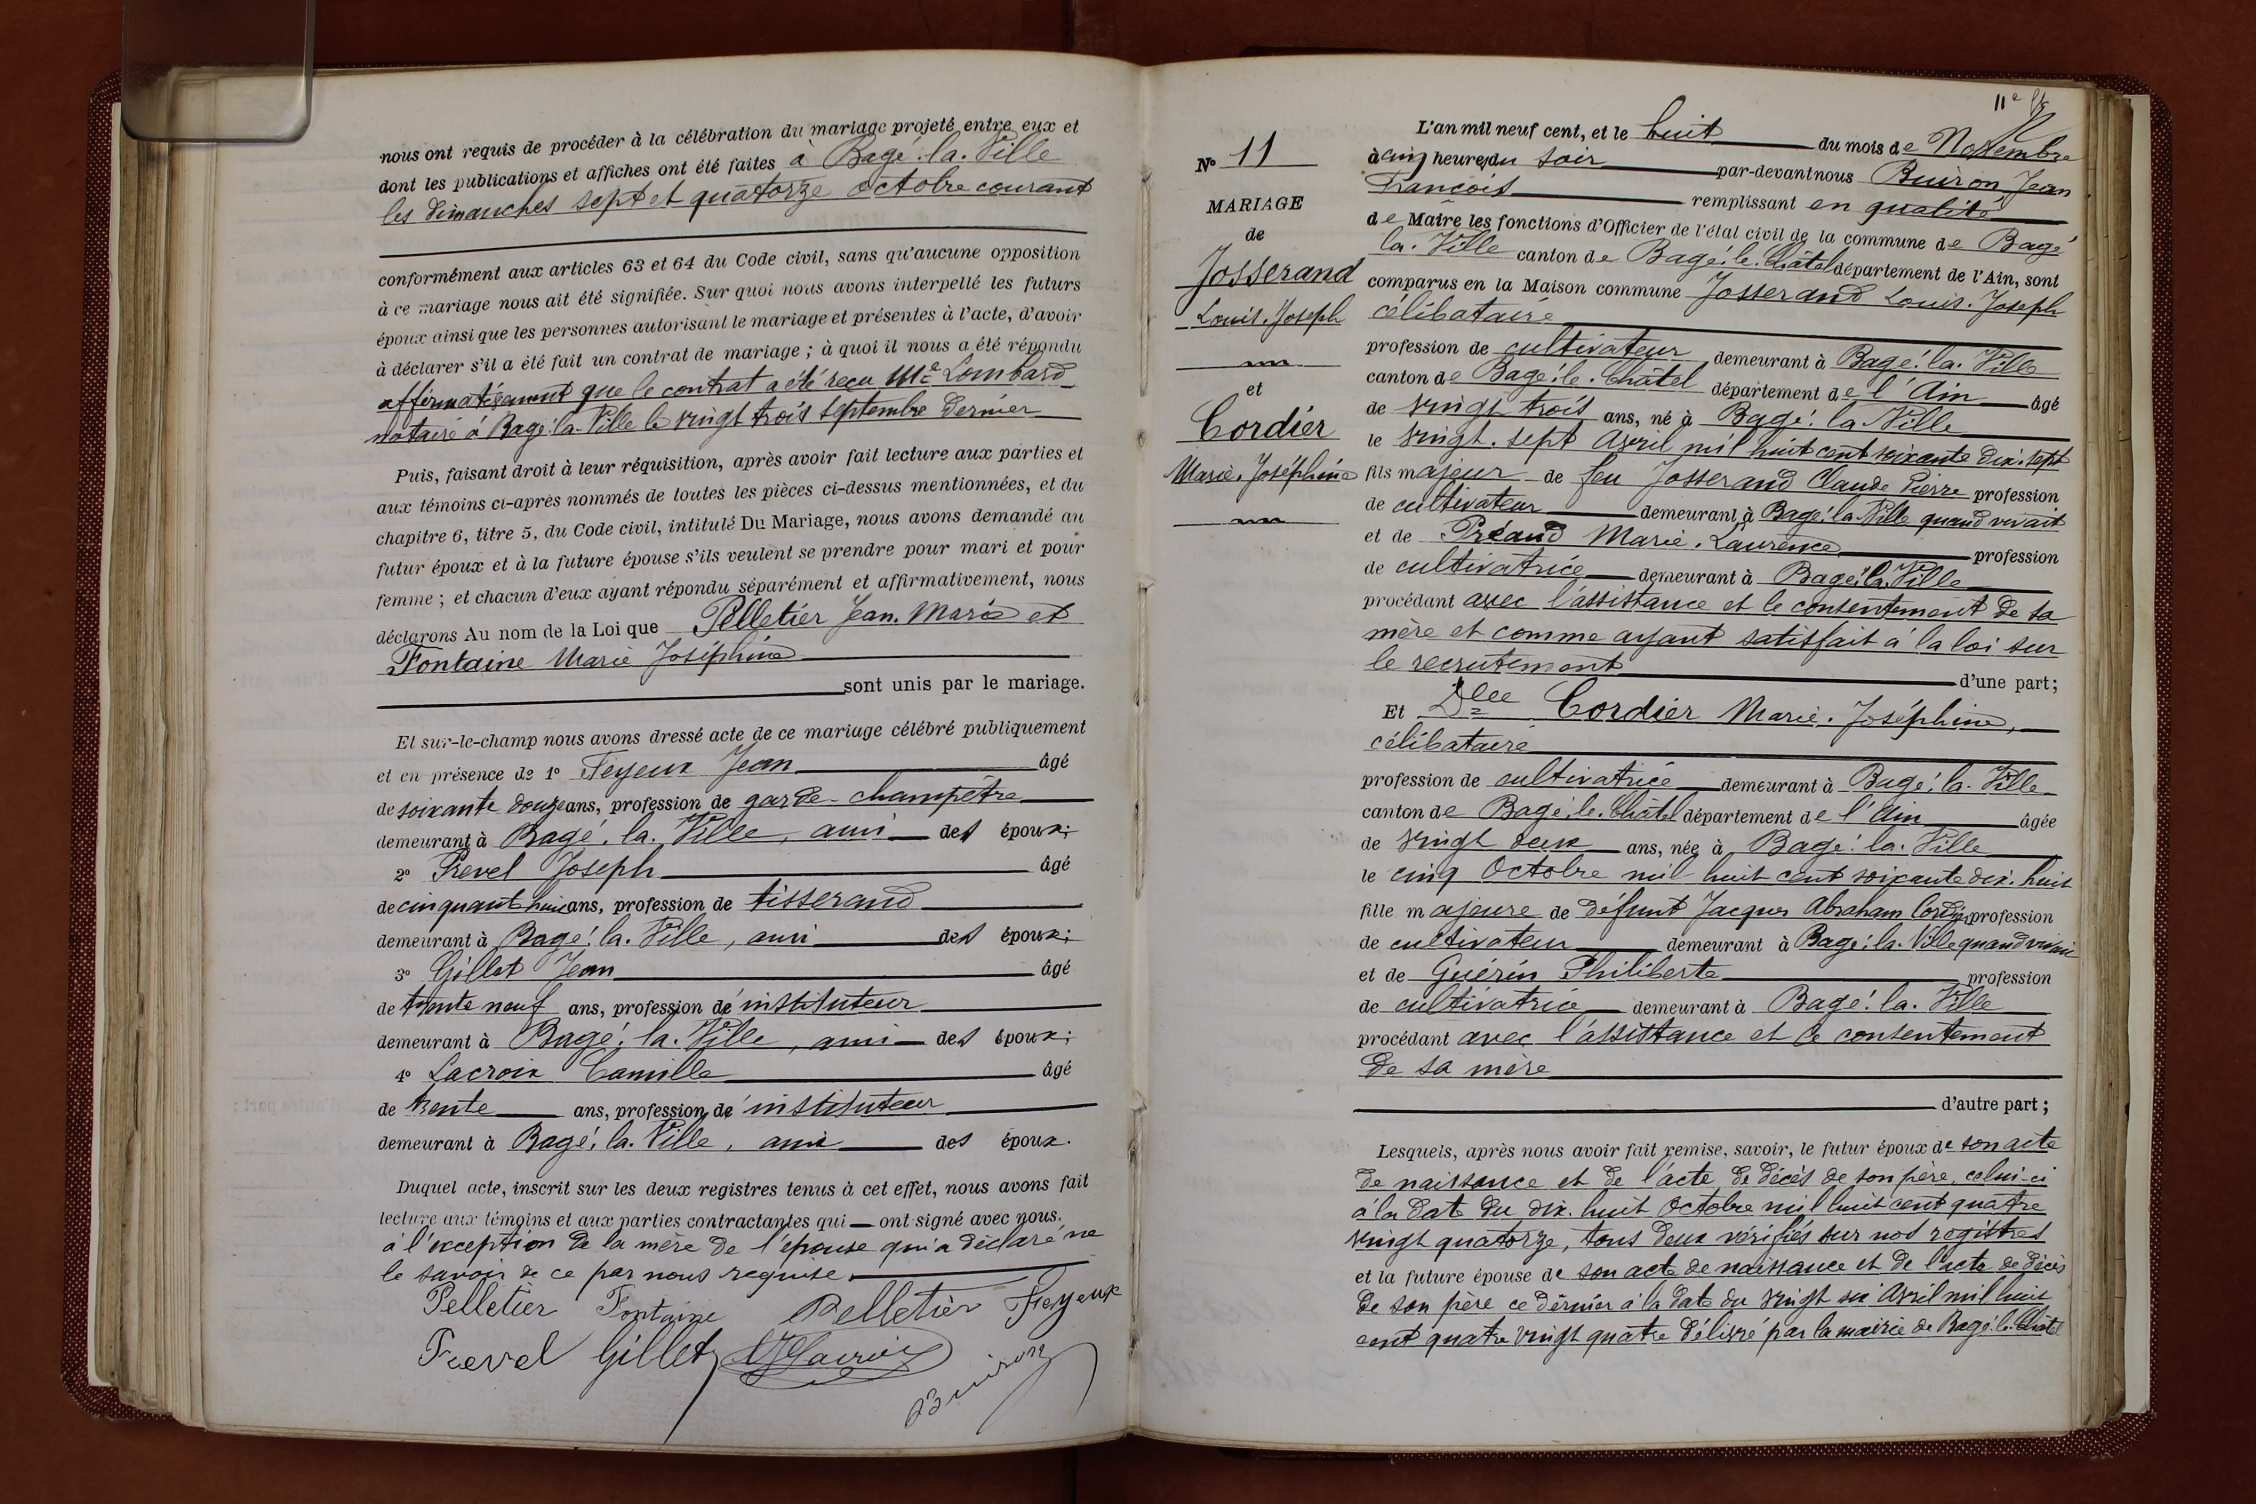 nous ont requis de procéder à la célébration du mariage projeté entre eux et
dont les publications et affiches ont été faites à Bagé-la-Ville
les dimanches sept et quatorze octobre courant
conformément aux articles 63 et 64 du Code civil, sans qu'aucune opposition
à ce mariage nous ait été signifiée. Sur quoi nous avons interpellé les futurs
époux ainsi que les personnes autorisant le mariage et présentes à l'acte, d'avoir
à déclarer s'il a été fait un contrat de mariage ; à quoi il nous a été répondu
affirmativement que le contrat a été reçu Me Lombard
notaire à Bagé-la-Ville le vingt trois septembre dernier
Puis, faisant droit à leur réquisition, après avoir fait lecture aux parties et
aux témoins ci-après nommés de toutes les pièces ci-dessus mentionnées, et du
chapitre 6, titre 5, du Code civil, intitulé Du Mariage, nous avons demandé au
futur époux et à la future épouse s'ils veulent se prendre pour mari et pour
femme ; et chacun d'eux ayant répondu séparément et affirmativement, nous
déclarons Au nom de la Loi que Pelletier Jean-Marie et
Fontaine Marie Joséphine
sont unis par le mariage.
Et sur-le-champ nous avons dressé acte de ce mariage célébré publiquement
et en présence de 1° Feyeux Jean âgé
de soixante douze ans, profession de garde-champêtre
demeurant à Bagé-la-Ville, ami des époux;
2° Prevel Joseph âgé
de cinquante huit ans, profession de tisserand
demeurant à Bagé-la-Ville, ami des époux;
3° Gillet Jean âgé
de trente neuf ans, profession d'instituteur
demeurant à Bagé-la-Ville, ami des époux;
4° Lacroix Camille âgé
de trente ans, profession d'instituteur
demeurant à Bagé-la-Ville, ami des époux.
Duquel acte, inscrit sur les deux registres tenus à cet effet, nous avons fait
lecture aux témoins et aux parties contractantes qui ont signé avec nous.
à l'exception de la mère de l'épouse qui a déclaré ne
le savoir de ce par nous requise.
Pelletier Fontaine Pelletier Feyeux
Prevel Gillet Lacroix
Buiron
11e
N° 11
MARIAGE
de
Josserand
Louis-Joseph
et
Cordier
Marie-Joséphine
L'an mil neuf cent, et le huit du mois de Novembre
à cinq heures du soir par-devant nous Buiron Jean
François remplissant en qualité
de Maire les fonctions d'Officier de l'état civil de la commune de Bagé
la-Ville canton de Bagé-le-Châtel département de l'Ain, sont
comparus en la Maison commune Josserand Louis-Joseph
célibataire
profession de cultivateur demeurant à Bagé-la-Ville
canton de Bagé-le-Châtel département de l'Ain âgé
de vingt trois ans, né à Bagé-la-Ville
le vingt-sept Avril mil huit cent soixante dix-sept
fils majeur de feu Josserand Claude Pierre profession
de cultivateur demeurant à Bagé-la-Ville quand vivait
et de Préaud Marie-Laurence profession
de cultivatrice demeurant à Bagé-la-Ville
procédant avec l'assistance et le consentement de sa
mère et comme ayant satisfait à la loi sur
le recrutement d'une part;
Et Dlle Cordier Marie-Joséphine,
célibataire
profession de cultivatrice demeurant à Bagé-la-Ville
canton de Bagé-le-Châtel département de l'Ain âgée
de vingt deux ans, née à Bagé-la-Ville
le cinq Octobre mil huit cent soixante dix-huit
fille majeure de défunt Jacques Abraham Cordier profession
de cultivateur demeurant à Bagé-la-Ville quand vivait
et de Guérin Philiberte profession
de cultivatrice demeurant à Bagé-la-Ville
procédant avec l'assistance et le consentement
de sa mère
d'autre part ;
Lesquels, après nous avoir fait remise, savoir, le futur époux de son acte
de naissance et de l'acte de décès de son père, celui-ci
à la date du dix-huit Octobre mil huit cent quatre
vingt quatorze, tous deux vérifiés sur nos registres
et la future épouse de son acte de naissance et de l'acte de décès
de son père ce dernier à la date du vingt six Avril mil huit
cent quatre vingt quatre délivré par la mairie de Bagé-le-Châtel